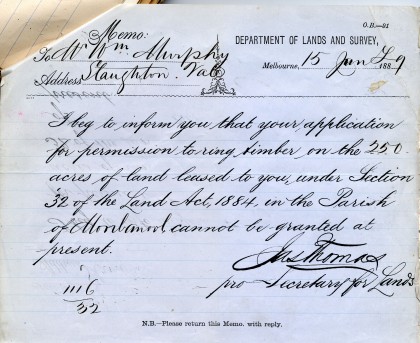 O.B.—81
Memo:
To Mr Wm Murphy
DEPARTMENT OF LANDS AND SURVEY,
Address Staughton Vale
Melbourne, 15 June 1889
I beg to inform you that your application
for permission to ring timber on the 250
acres of land leased to you, under Section
32 of the Land Act, 1884, in the Parish
of cannot be granted at
present.
Jas Thomas
pro Secretary for Lands
1116
32
N.B.—Please return this Memo. with reply.